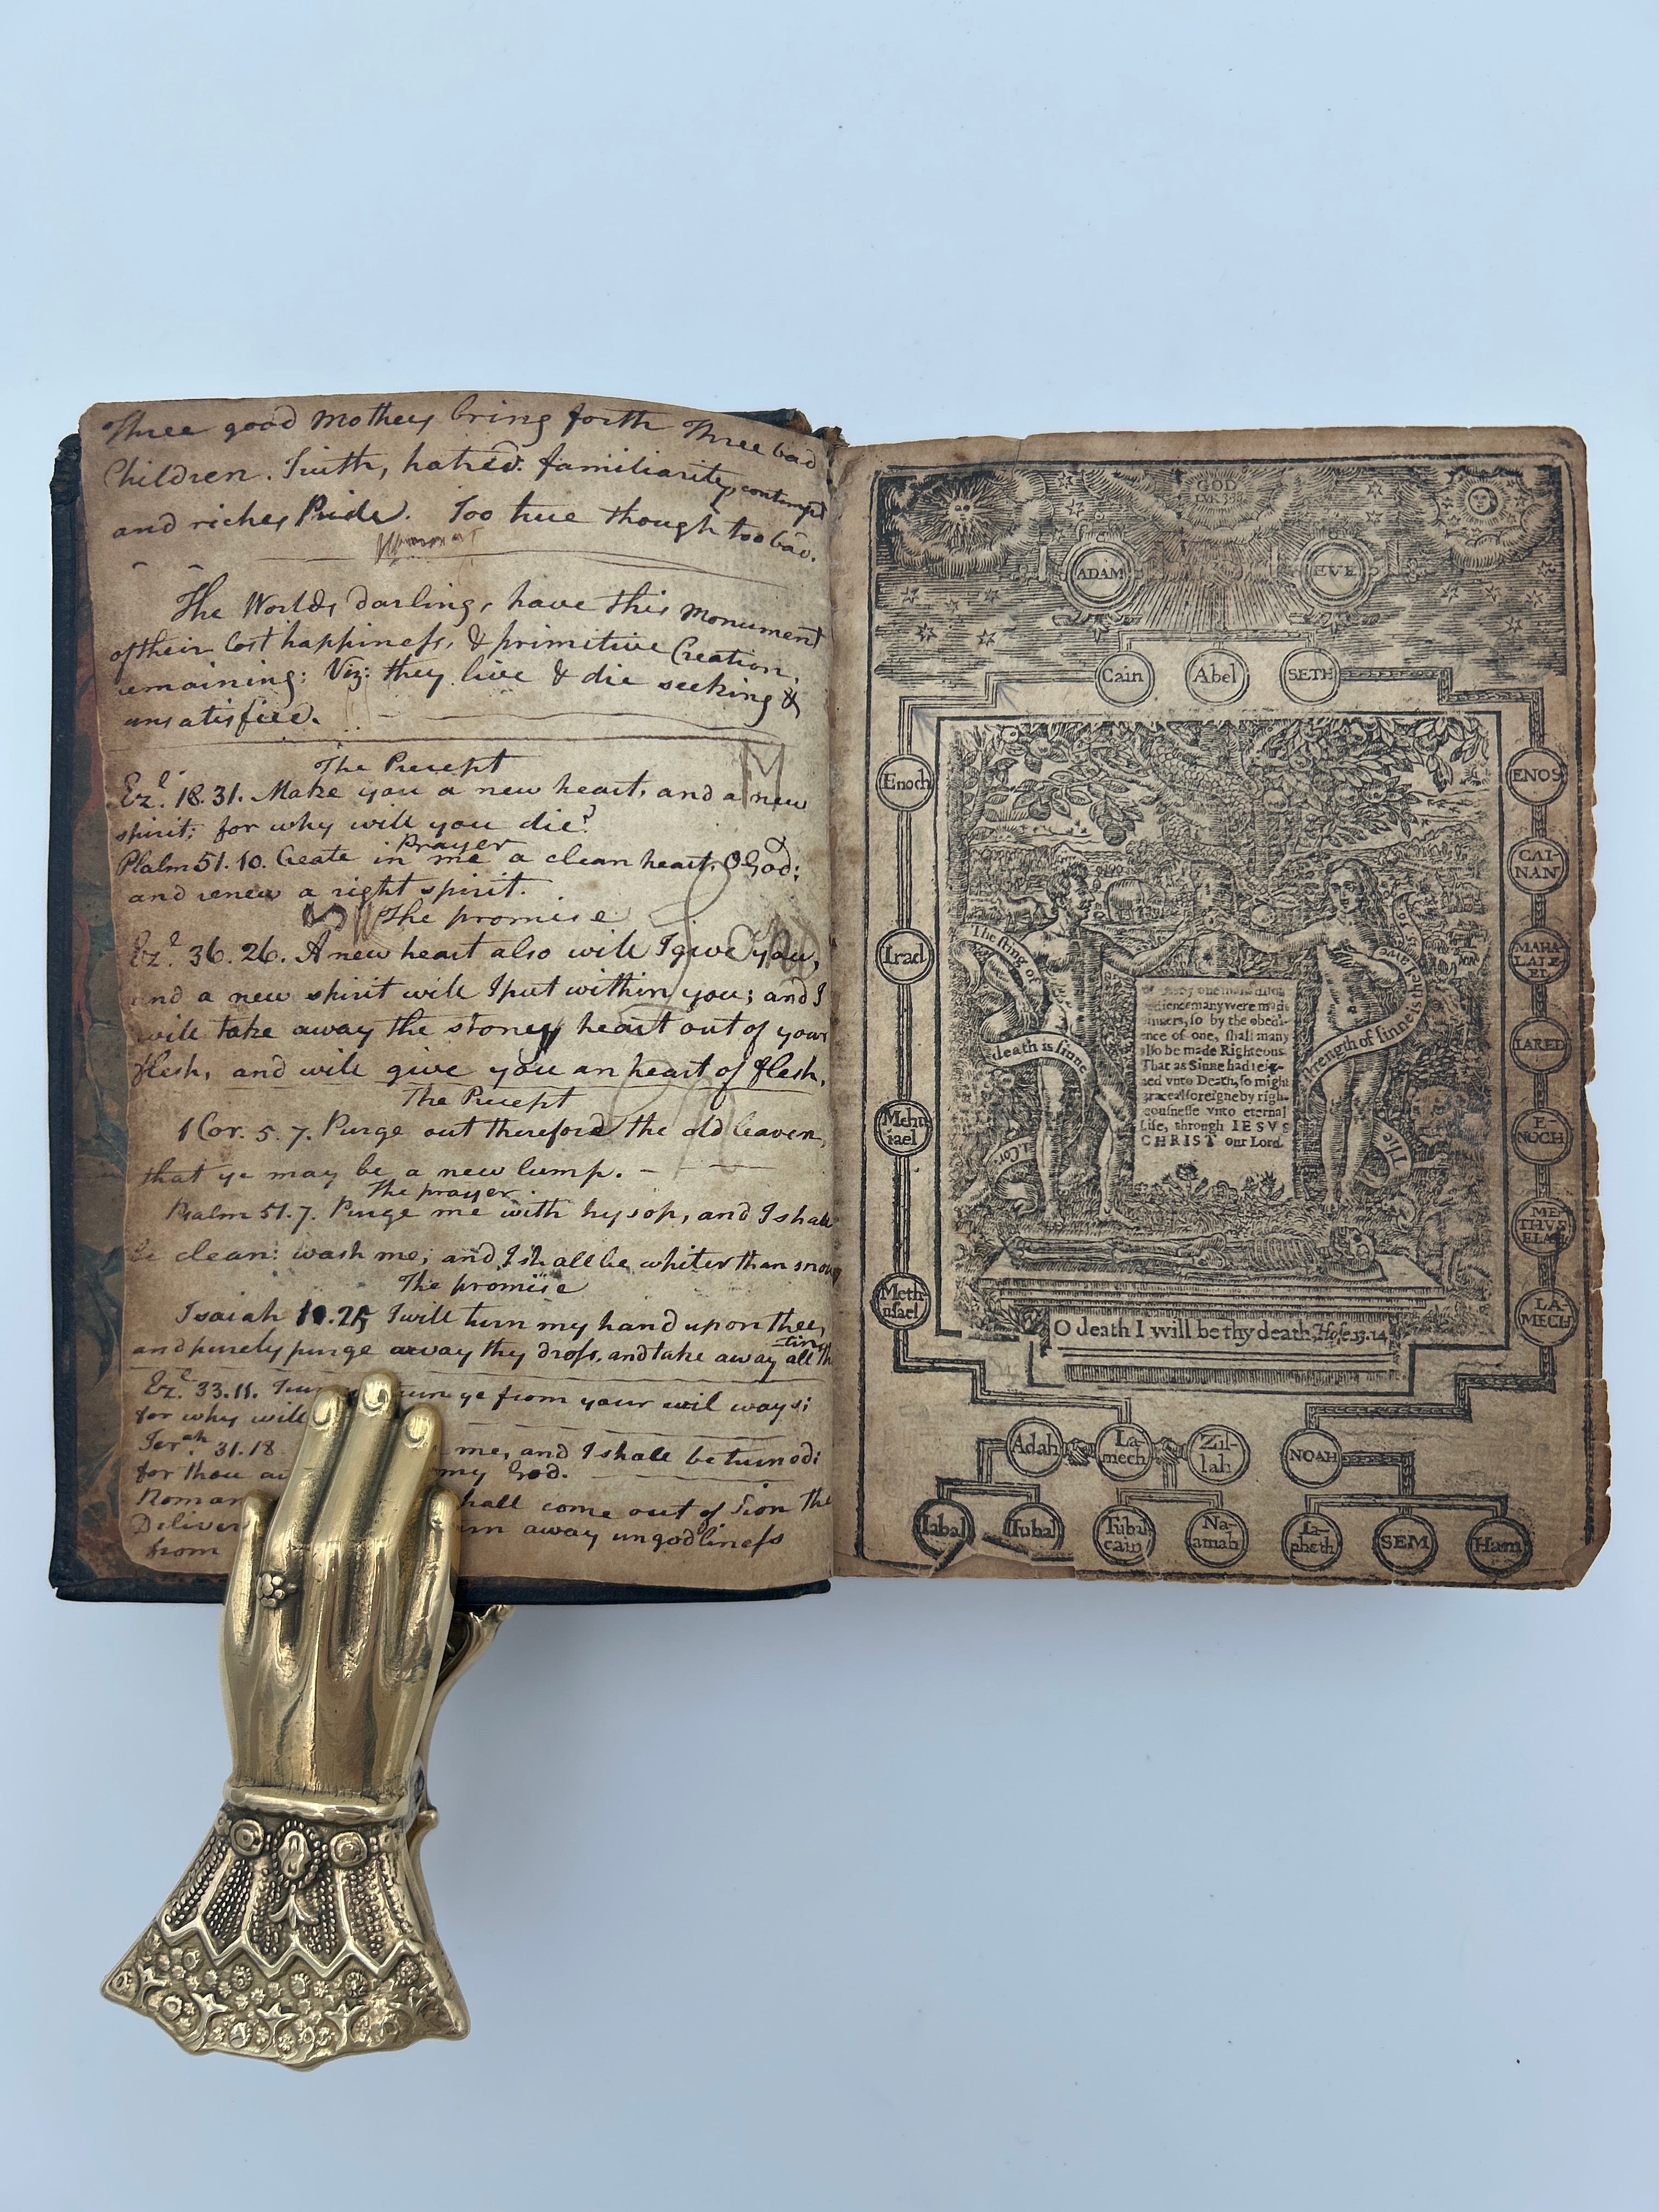 Three good Mothers bring forth Three bad
Children. Truth, hatred. familiarity, contempt
and riches Pride. Too true though too bad.
The Worlds darlings have this Monument
of their lost happiness, & primitive Creation,
remaining: Viz: they live & die seeking &
unsatisfied.
The Precept
Ezl. 18.31. Make you a new heart, and a new
spirit; for why will you die?
Prayer
Psalm 51.10. Create in me a clean heart, O God;
and renew a right spirit.
The promise
Ezl. 36.26. A new heart also will I give you,
and a new spirit will I put within you; and I
will take away the stoney heart out of your
flesh, and will give you an heart of flesh.
The Precept
1 Cor. 5.7. Purge out therefore the old leaven,
that ye may be a new lump.
The prayer
Psalm 51.7. Purge me with hysop, and I shall
be clean: wash me, and I shall be whiter than snow
The promise
Isaiah 1.25 I will turn my hand upon thee,
and purely purge away thy dross, and take away all th
tin
Ezl. 33.11. turn ye from your evil ways;
for why will
Jerah. 31.18 me, and I shall be turned:
for thou my God.
Roman hall come out of Sion the
Deliver away ungodliness
from
GOD
LVK 3.38
ADAM
EVE
Cain
Abel
SETH
Enoch
Irad
Mehu
iael
Meth
usael
The sting of
death is sinne
1 Cor
The
strength of sinne is the Lawe
by one mans diso
dience many were made
sinners, so by the obedi-
ence of one, shall many
also be made Righteous
That as Sinne had reig-
ned vnto Death, so might
grace also reigne by righ-
teousnesse vnto eternal
Life, through IESVS
CHRIST our Lord.
O death I will be thy death, Hose. 13. 14
ENOS
CAI-
NAN
MAHA-
LALE-
EL
IARED
E-
NOCH
ME-
THVS
ELAH
LA-
MECH
Adah
La-
mech
Zil-
lah
NOAH
Iabal
Iubal
Tubal
cain
Na-
amah
Ia-
pheth
SEM
Ham